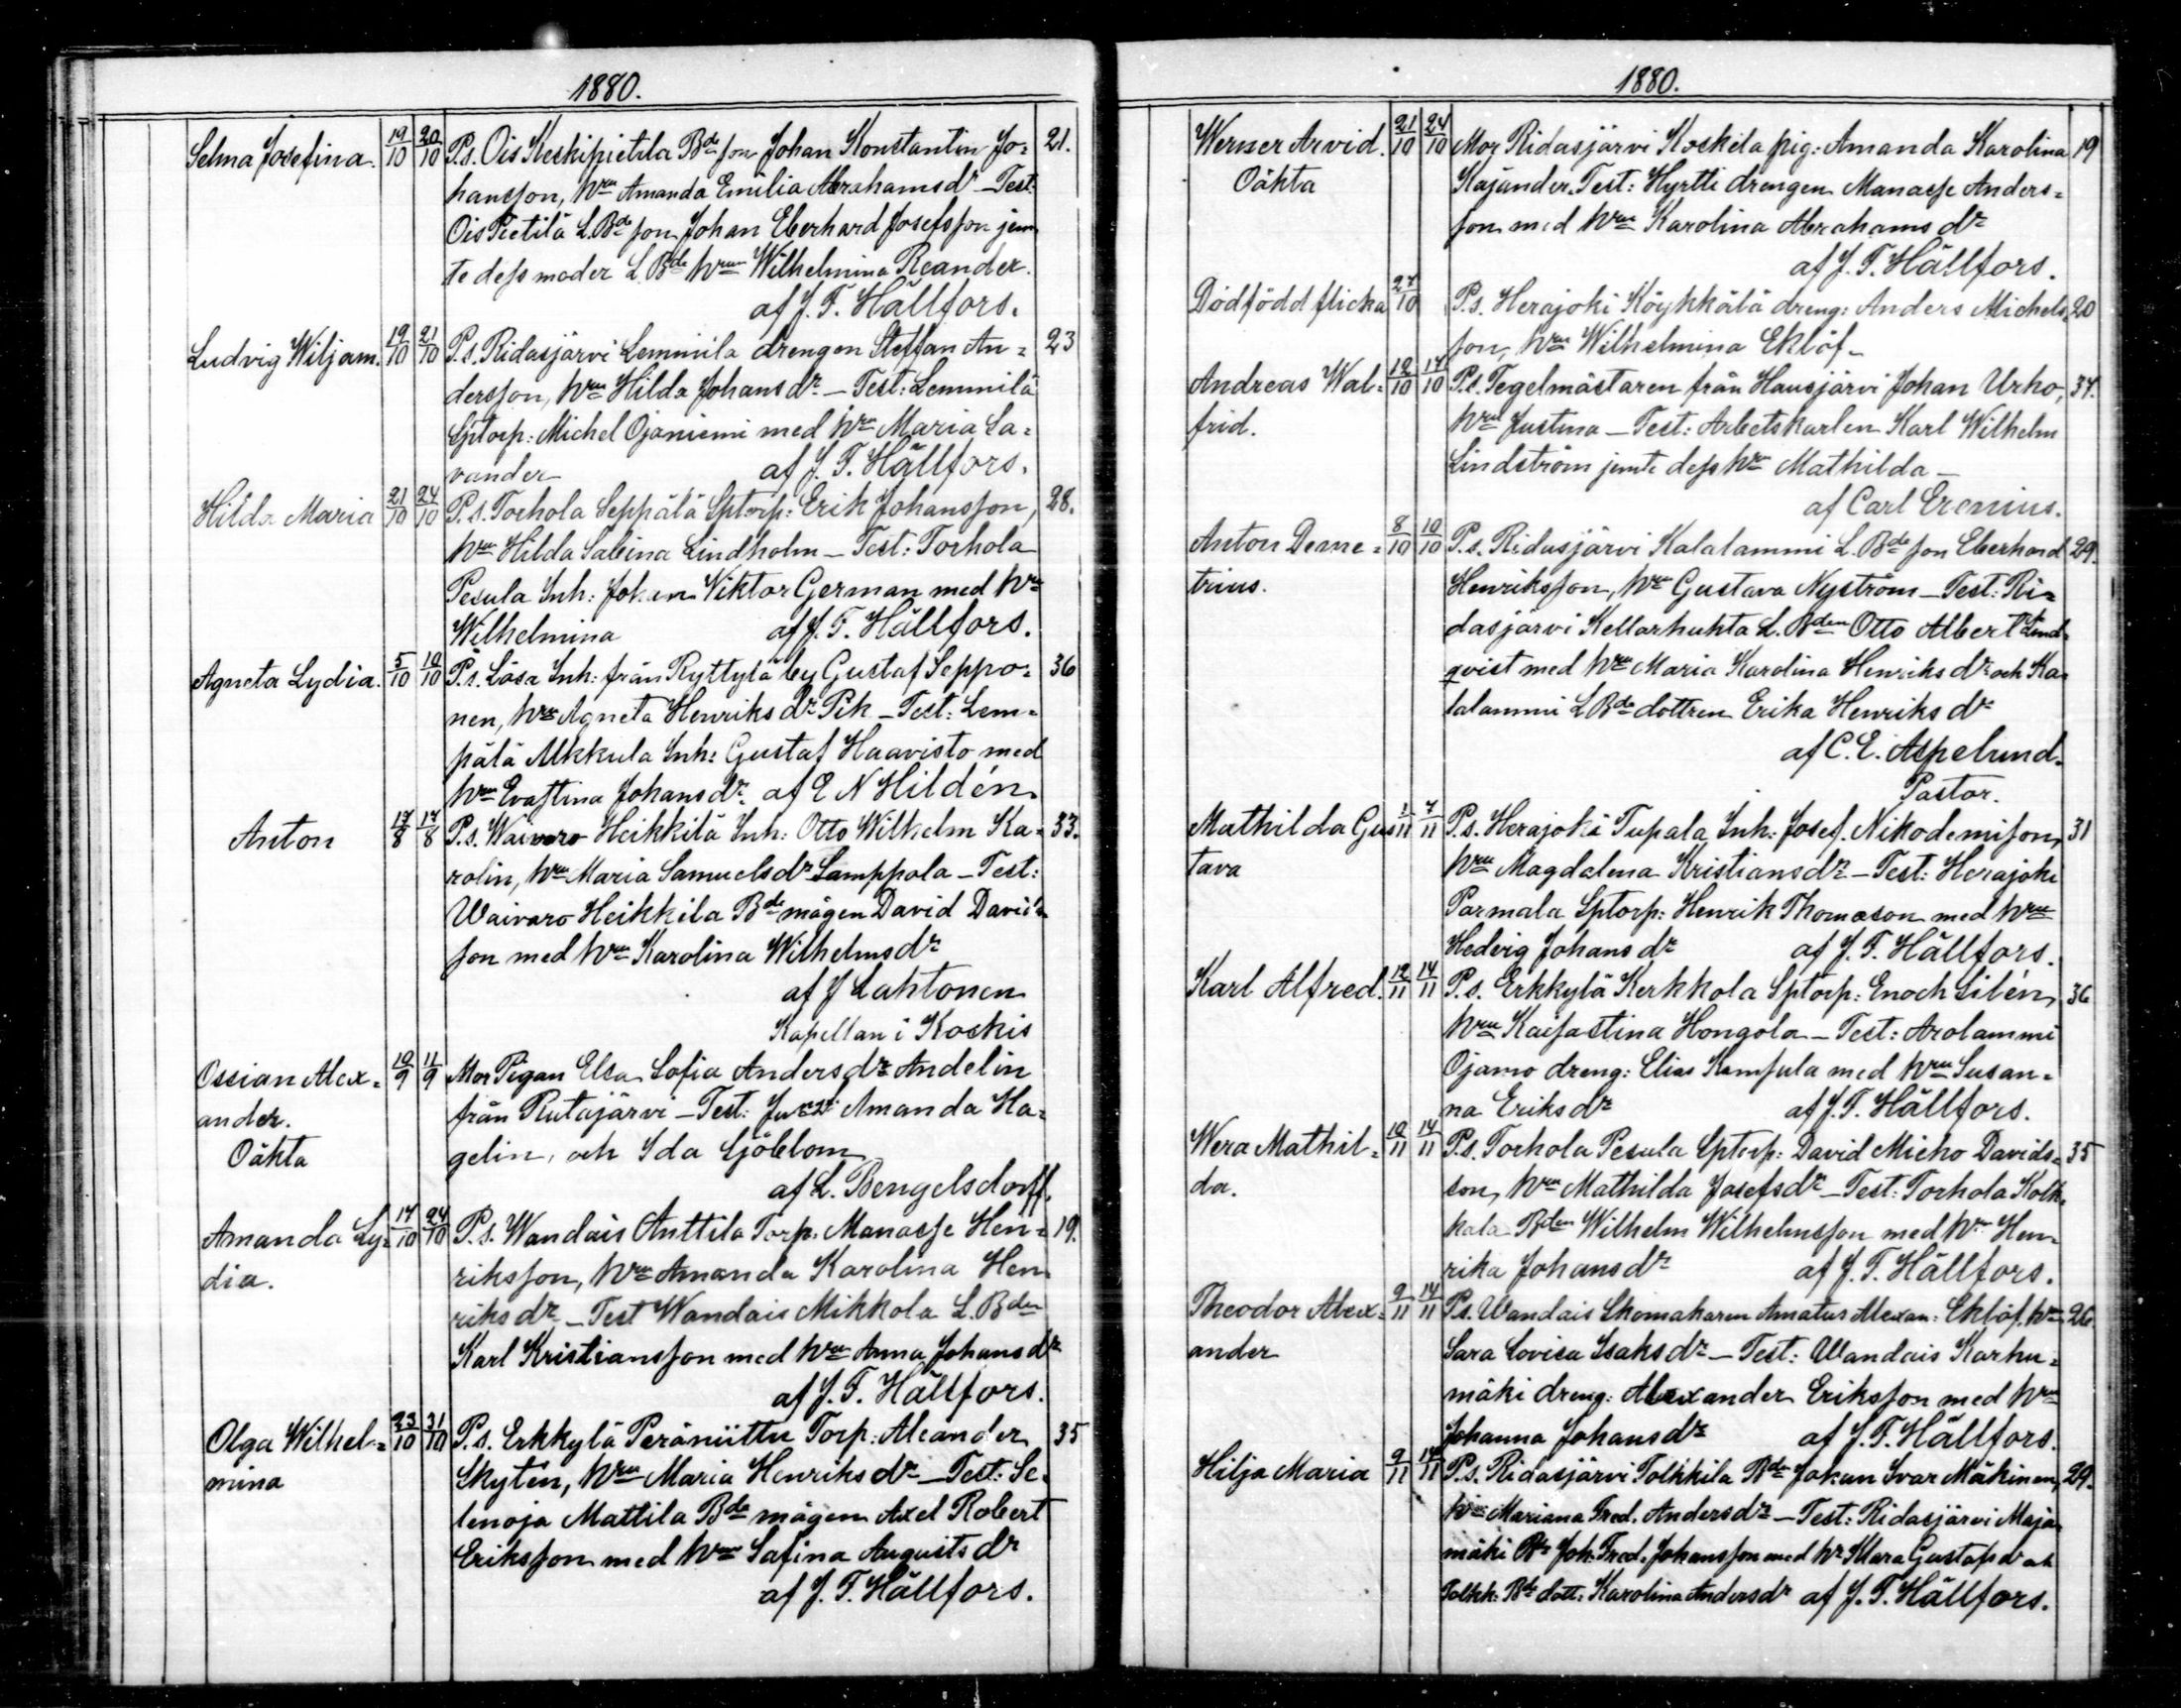 1880.
Selma Josefina. 19/10 20/10 P.s. Ois Keskipietila Bde son Johan Konstantin Jo= 21.
hansson, hru Amanda Emilia Abrahamsdr – Test:
Ois Pietilä L.Bde son Johan Eberhard Josefsson jem
te dess moder L Bde hrun Wilhelmina Reander.
af J. F. Hällfors.
Ludvig Wiljam. 19/10 21/10 P.s. Ridasjärvi Lemmila drengen Steffan An= 23
dersson, hru Hilda Johansdr – Test: Lemmilä
Sptorp: Michel Ojaniemi med hru Maria La=
vander af J. F. Hällfors.
Hilda Maria 21/10 24/10 P.s. Torhola Seppälä Sptorp: Erik Johansson, 28.
hru Hilda Sabina Lindholm – Test: Torhola
Pesula Inh: Johan Viktor German med hru
Wilhelmina af J. F. Hällfors.
Agneta Lydia. 5/10 10/10 P.s. Lösa Inh: från Ryttylä by Gustaf Seppo= 36
nen, hru Agneta Henriksdr Pih – Test: Lem=
pälä Ukkula Inh: Gustaf Haavisto med
hru Evastina Johansdr. af E N Hildén
Anton 17/8 17/8 P.s. Waivaro Heikkilä Inh: Otto Wilhelm Ka= 33.
rolin, hru Maria Samuelsdr Lamppola – Test:
Waivaro Heikkila Bde mågen David Davids
son med hru Karolina Wilhelmsdr
af J Lahtonen
Kapellan i Koskis
Ossian Alex= 10/9 11/9 Mor Pigan Elsa Sofia Andersdr Andelin
ander. från Rutajärvi – Test: Amanda Ha=
Oäkta gelin, och Ida Sjöblom
af L. Bengelsdorff.
Amanda Ly= 14/10 24/10 P.s. Wandais Anttila Torp. Manasse Hen= 19.
dia. riksson, hru Amanda Karolina Hen
riksdr – Test Wandais Mikkola L.Bden
Karl Kristiansson med hru Anna Johansdr
af J. F. Hällfors.
Olga Wilhel= 23/10 31/10 P.s. Erkkylä Peräniittu Torp: Aleander 35
mina Skytén, hru Maria Henriksdr – Test: Se
lenoja Mattila Bde mågen Axel Robert
Eriksson med hru Safina Augustsdr
af J. F. Hällfors.
1880.
Werner Arvid. 21/10 24/10 Mor Ridasjärvi Koskela pig: Amanda Karolina 19
Oäkta Kajander. Test: Hyrtti drengen Manasse Anders=
son med hru Karolina Abrahamsdr
af J. F. Hällfors.
Dödfödd flicka 27/10 P.s. Herajoki Köykkälä dreng: Anders Michels 20
son, hru Wilhelmina Eklöf –
Andreas Wal= 12/10 17/10 P.s. Tegelmästaren från Hausjärvi Johan Urho, 34.
frid. hru Justina – Test: Arbetskarlen Karl Wilhelm
Lindström jemte dess hru Mathilda –
af Carl Erenius.
Anton Deme= 8/10 10/10 P.s. Ridasjärvi Kalalammi L.Bde son Eberhard 29.
trius. Henriksson, hru Gustava Nyström – Test: Ri=
dasjärvi Kellarhuhta L.Bden Otto Albert Lind
qvist med hru Maria Karolina Henriksdr och Ka
lalammi L Bde dottren Erika Henriksdr
af C. E. Aspelund.
Pastor.
Mathilda Gus 1/11 7/11 P.s. Herajoki Tupala Inh: Josef Nikodemison, 31
tava hru Magdalena Kristiansdr – Test: Herajoki
Parmala Sptorp: Henrik Thomason med hru
Hedvig Johansdr af J. F. Hällfors.
Karl Alfred. 12/11 14/11 P.s. Erkkylä Kerkkola Sptorp: Enoch Silén, 36
hru Kaisastina Hongola – Test: Arolammi
Ojamo dreng: Elias Kampula med hru Susan=
na Eriksdr af J. F. Hällfors.
Wera Mathil= 10/11 14/11 P.s. Torhola Pesula Sptorp: David Micho Davids= 35
da. son, hru Mathilda Josefsdr – Test: Torhola Kolk
kala Bden Wilhelm Wilhelmsson med hru Hen
rika Johansdr af J. F. Hällfors.
Theodor Alex= 9/11 14/11 P.s. Wandais Skomakaren Amatus Alexan: Eklöf, hru 26.
ander Sara Lovisa Isaksdr – Test: Wandais Karhu=
mäki dreng: Alexander Eriksson med hru
Johanna Johansdr af J. F. Hällfors.
Hilja Maria 9/11 14/11 P.s. Ridasjärvi Tolkkila Bde Johan Ivar Mäkinen, 29.
hru Mariana Fred. Andersdr – Test: Ridasjärvi Maja
mäki Bde Joh. Fred. Johansson med hr Klara Gustafsdr och
Tolkk: Bde dott: Karolina Andersdr af J. F. Hällfors.